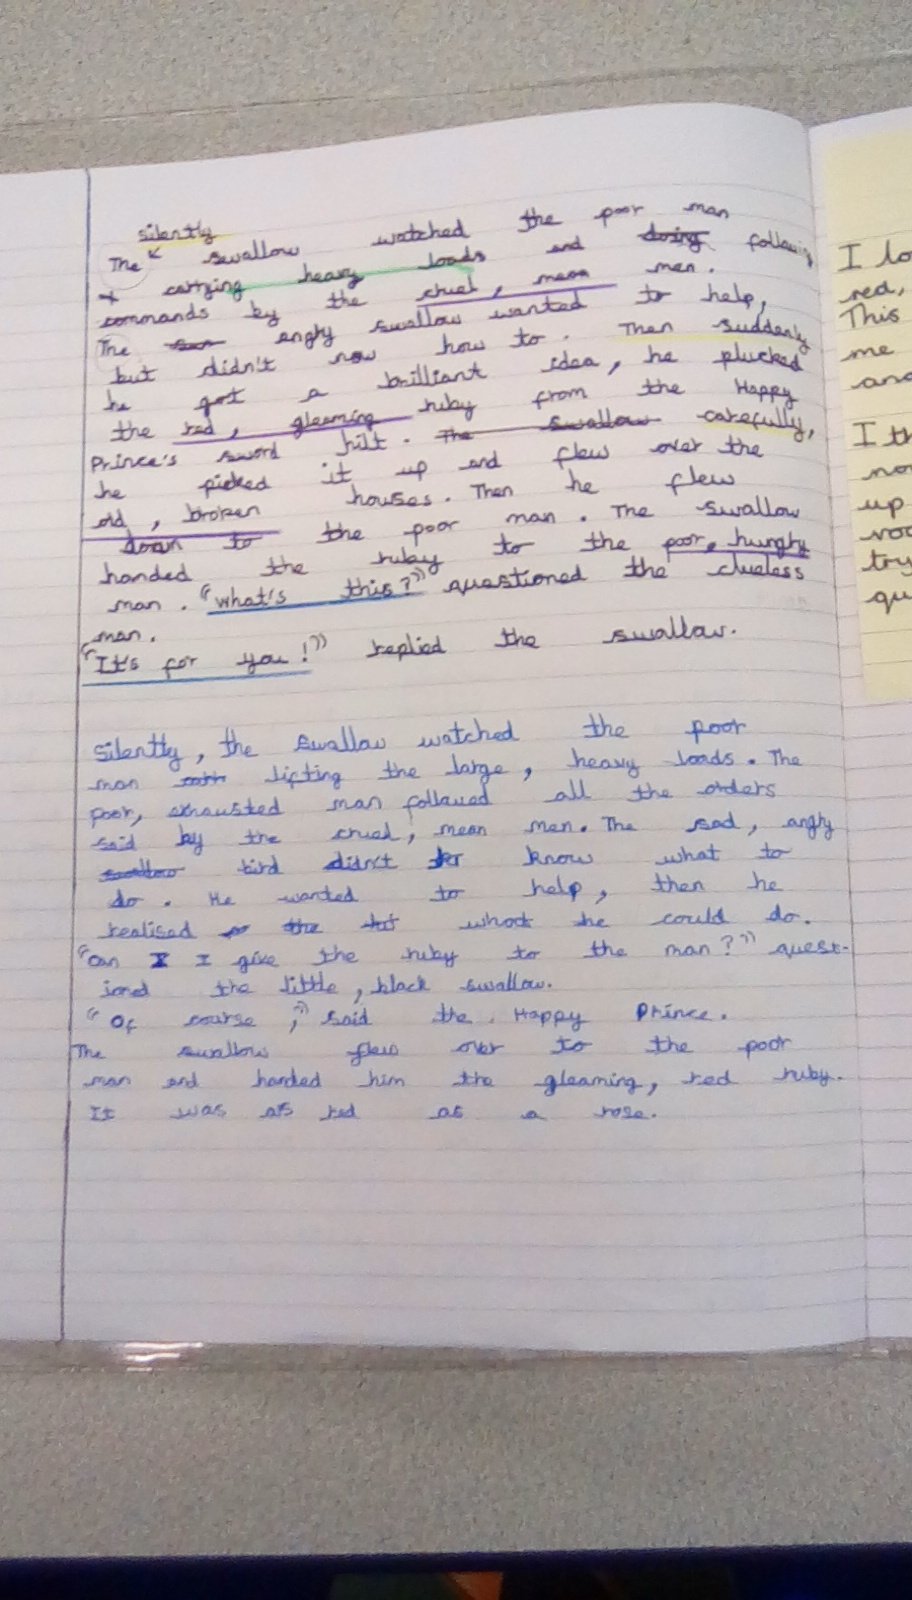 silently
The swallow watched the poor man
carrying heavy loads and doing following
commands by the cruel, mean men.
The angry swallow wanted to help,
but didn't now how to. Then suddenly
he got a brilliant idea, he plucked
the red, gleaming ruby from the Happy
Prince's sword hilt. The swallow carefully,
he picked it up and flew over the
old, broken houses. Then he flew
down to the poor man. The swallow
handed the ruby to the poor, hungry
man. "What's this?" questioned the clueless
man.
"It's for you!" replied the swallow.
Silently, the swallow watched the poor
man lifting the large, heavy loads. The
poor, exhausted man followed all the orders
said by the cruel, mean men. The sad, angry
swallow bird didn't know what to
do. He wanted to help, then he
realised the what he could do.
"Can I I give the ruby to the man?" quest-
ioned the little, black swallow.
"Of course," said the Happy Prince.
The swallow flew over to the poor
man and handed him the gleaming, red ruby.
It was as red as a rose.
I lo
red,
This
me
and
I th
now
up
try
qu